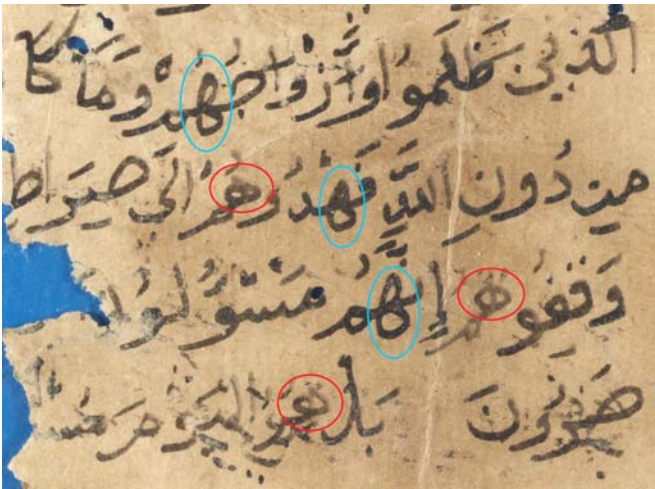 الَّذِينَ ظَلَمُوا وَأَزْوَاجَهُمْ وَمَا كَا
مِن دُونِ اللَّهِ فَهْدُوهُمْ إِلَى صِرَاطِ
وَقِفُوهُمْ إِنَّهُم مَسْؤُلُو
صَرُونَ بَلْ هُمُ الْيَوْمَ